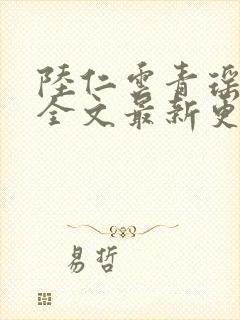 陸仁雲青瑶
全文最新更
易哲